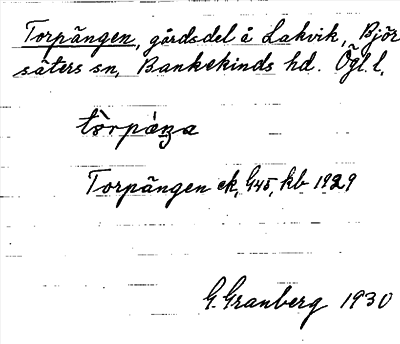 Torpängen, gårdsdel å Lakvik, Björ
säters sn, Bankekinds hd. Ögl. l.
tòrpáŋa
Torpängen ek, G45, kb 1929
G. Granberg 1930